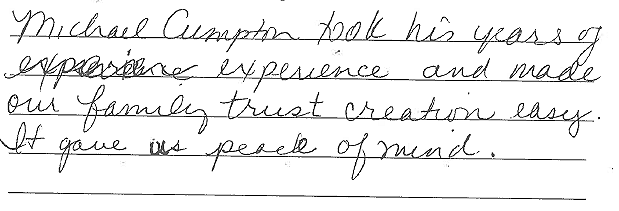 Michael Cumpton took his years of
experience and made
our family trust creation easy.
It gave us peace of mind.